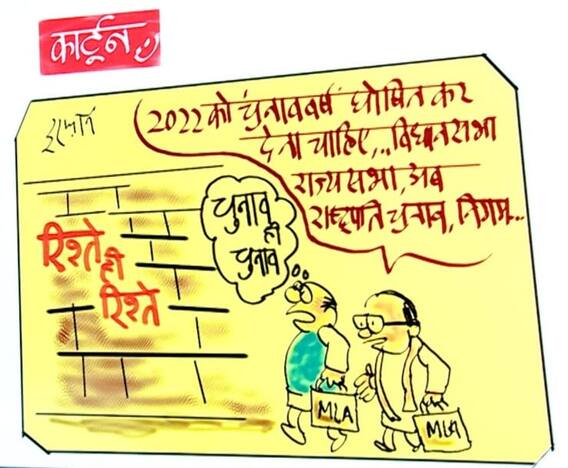 कार्टून
इरफान
2022 को चुनाव वर्ष घोषित कर
देना चाहिए,..विधानसभा
राज्यसभा, अब
राष्ट्रपति चुनाव, निगम...
चुनाव
ही
चुनाव
रिश्ते
ही
रिश्ते
MLA
MLA